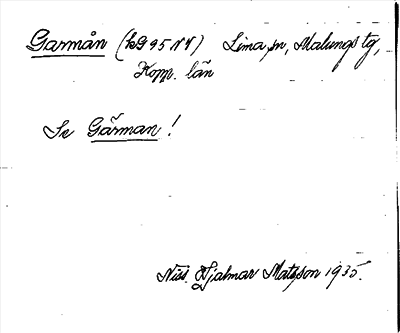 Garmån (kG 95 NV) Lima sn, Malungs tg,
Kopp. län
Se Gärman!
Hjalmar Matsson 1935.